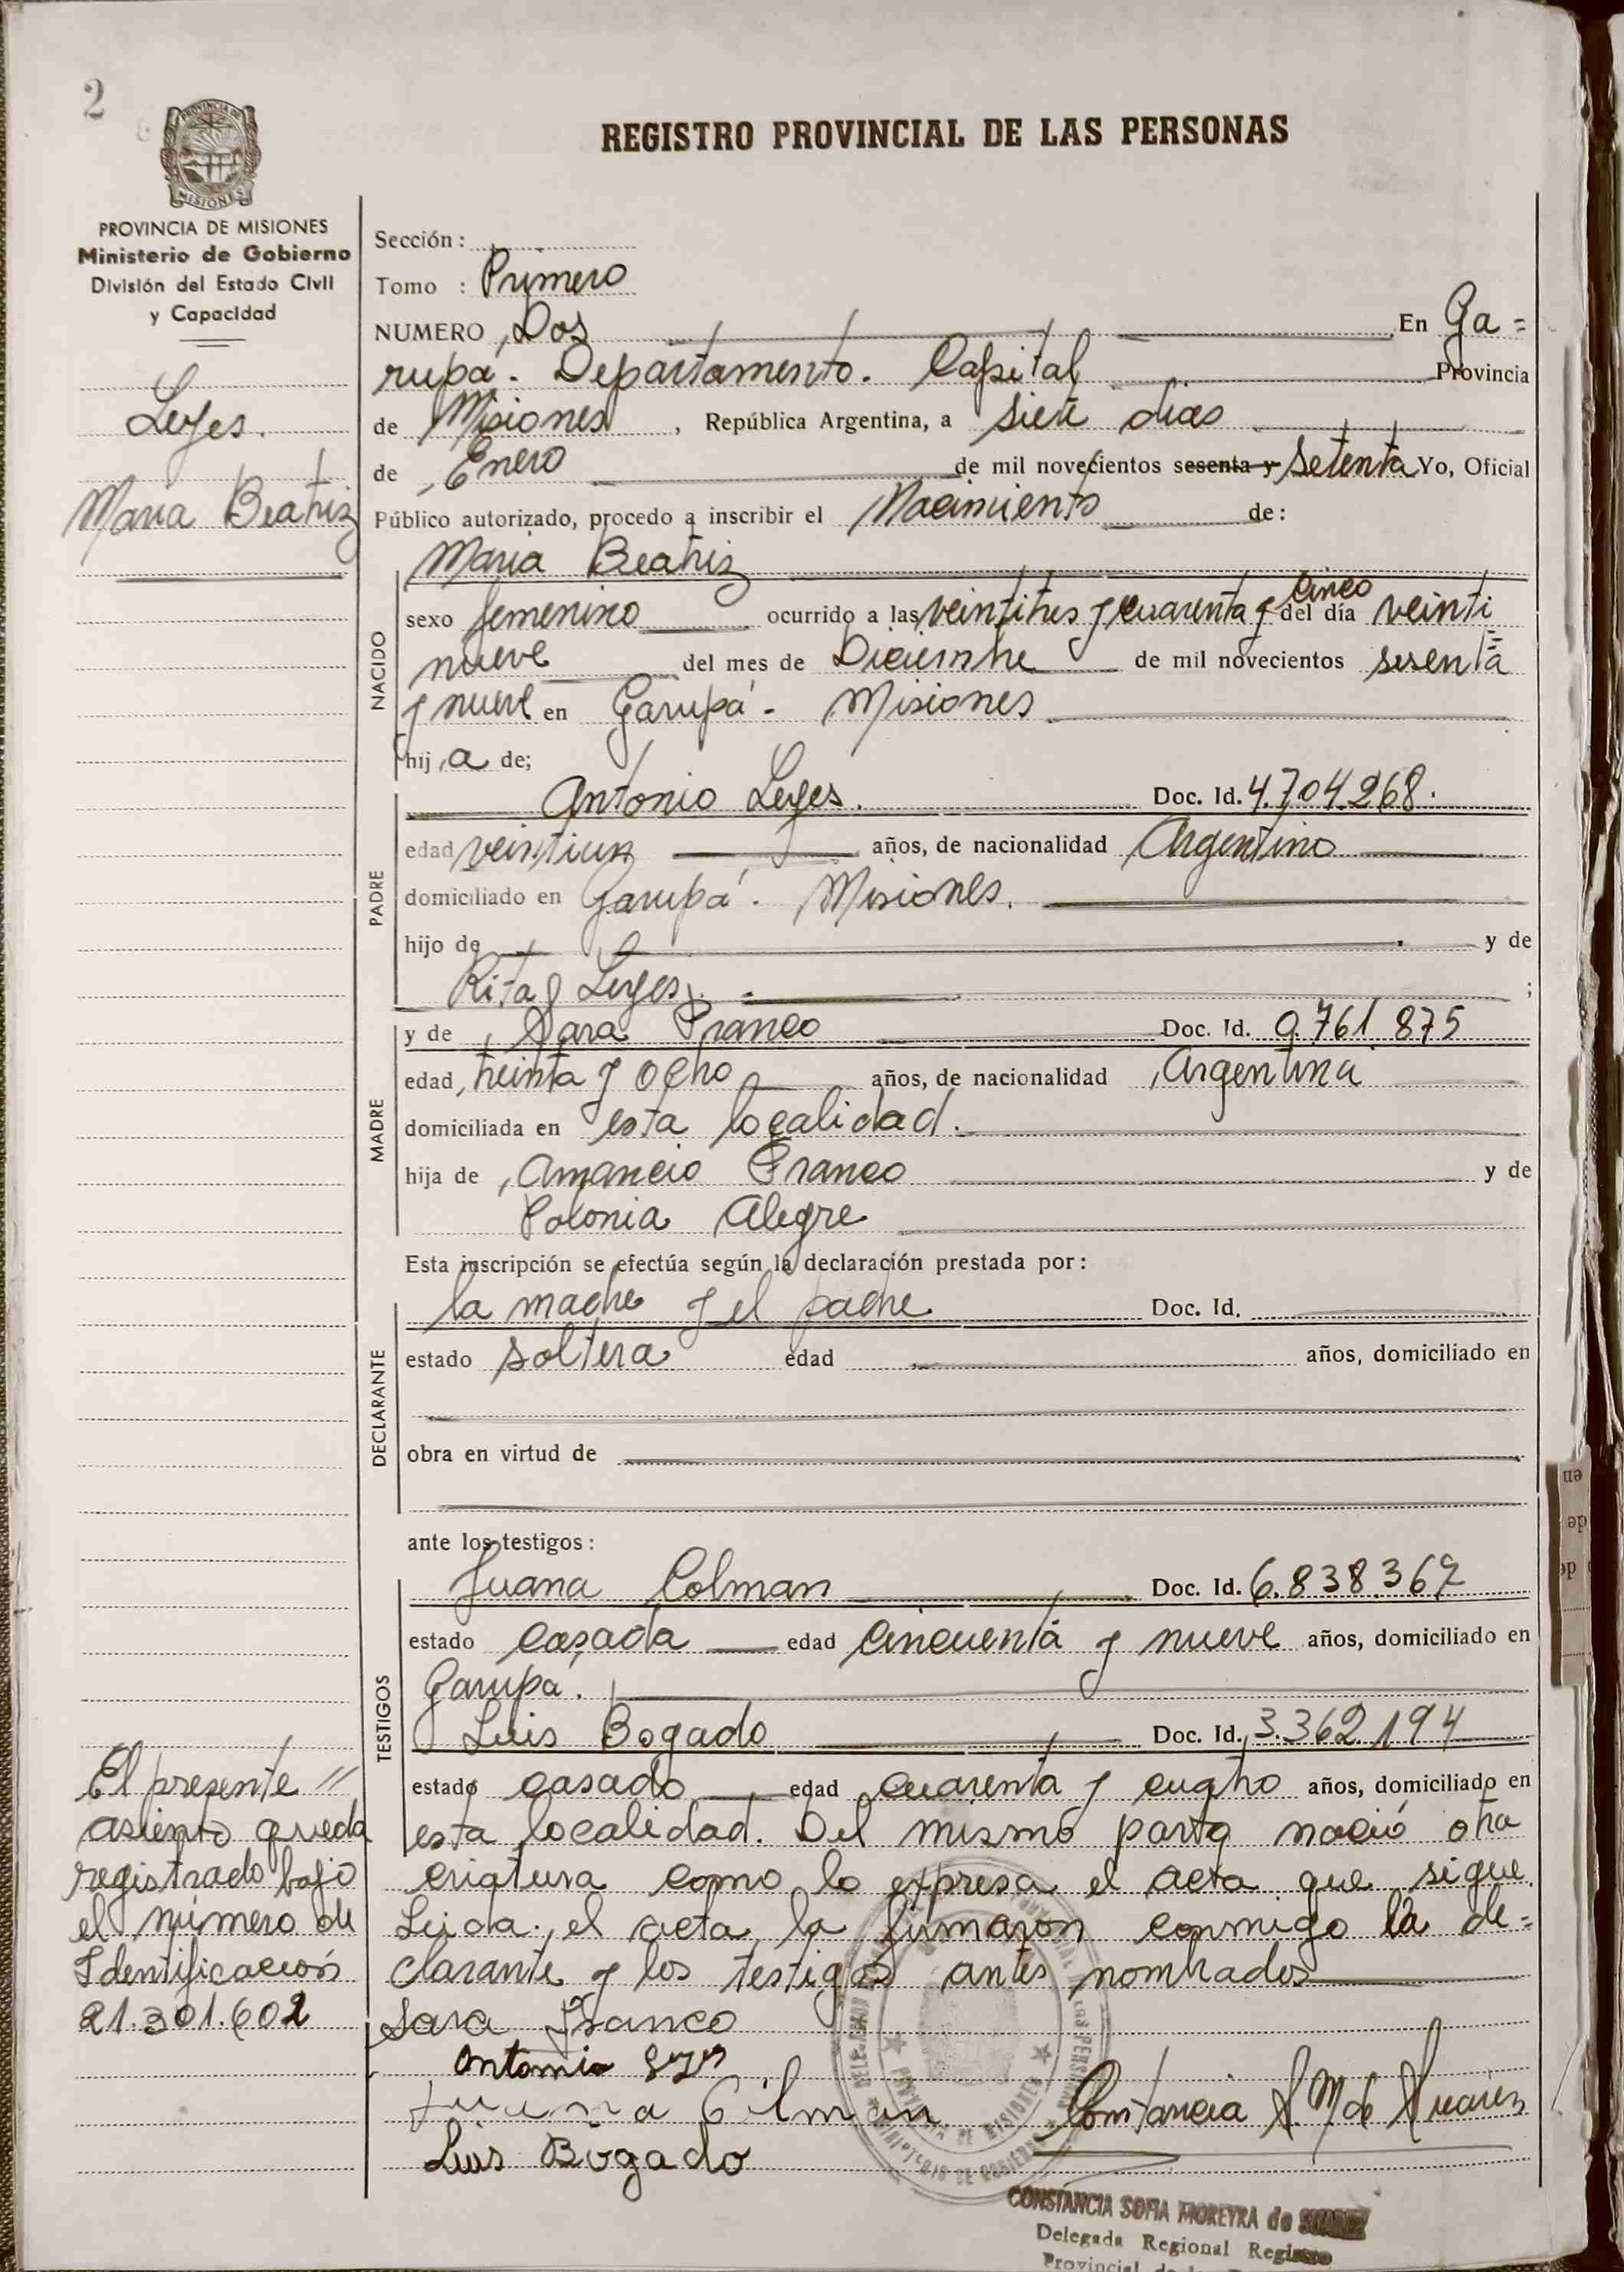 2
REGISTRO PROVINCIAL DE LAS PERSONAS
PROVINCIA DE MISIONES
Ministerio de Gobierno
División del Estado Civil
y Capacidad
Leyes.
Maria Beatriz
Sección :
Tomo : Primero
NUMERO Dos En Ga=
rupá. Departamento. Capital Provincia
de Misiones, República Argentina, a siete dias
de Enero de mil novecientos sesenta y setenta Yo, Oficial
Público autorizado, procedo a inscribir el Nacimiento de:
Maria Beatriz
NACIDO
sexo femenino ocurrido a las veintitres y cuarenta y cinco del día veinti
nueve del mes de Diciembre de mil novecientos sesenta
y nueve en Garupá - Misiones
hija de;
PADRE
Antonio Leyes. Doc. Id. 4.704.268.
edad veintiun años, de nacionalidad Argentino
domiciliado en Garupá. Misiones.
hijo de y de
Rita Leyes. ;
MADRE
y de Sara Franco Doc. Id. 0.761 875
edad treinta y ocho años, de nacionalidad Argentina
domiciliada en esta localidad.
hija de Amancio Franco y de
Polonia Alegre
Esta inscripción se efectúa según la declaración prestada por :
DECLARANTE
la madre y el padre Doc. Id.
estado soltera edad años, domiciliado en
obra en virtud de
ante los testigos :
TESTIGOS
Juana Colman Doc. Id. 6.838.367
estado casada edad cincuenta y nueve años, domiciliado en
Garupá.
Luis Bogado Doc. Id. 3.362.194
estado casado edad cuarenta y cuatro años, domiciliado en
esta localidad. Del mismo parto nació otra
criatura como lo expresa el acta que sigue.
Leida el acta la firmaron conmigo la de=
clarante y los testigos antes nombrados
El presente
asiento queda
registrado bajo
el número de
Identificación
21.301.602
Sara Franco
Antonio
Juana Colman
Luis Bogado
Constancia S. M. de Suarez
PROVINCIA DE MISIONES
CONSTANCIA SOFIA MOREYRA de SUAREZ
Delegada Regional Registro
Provincial de